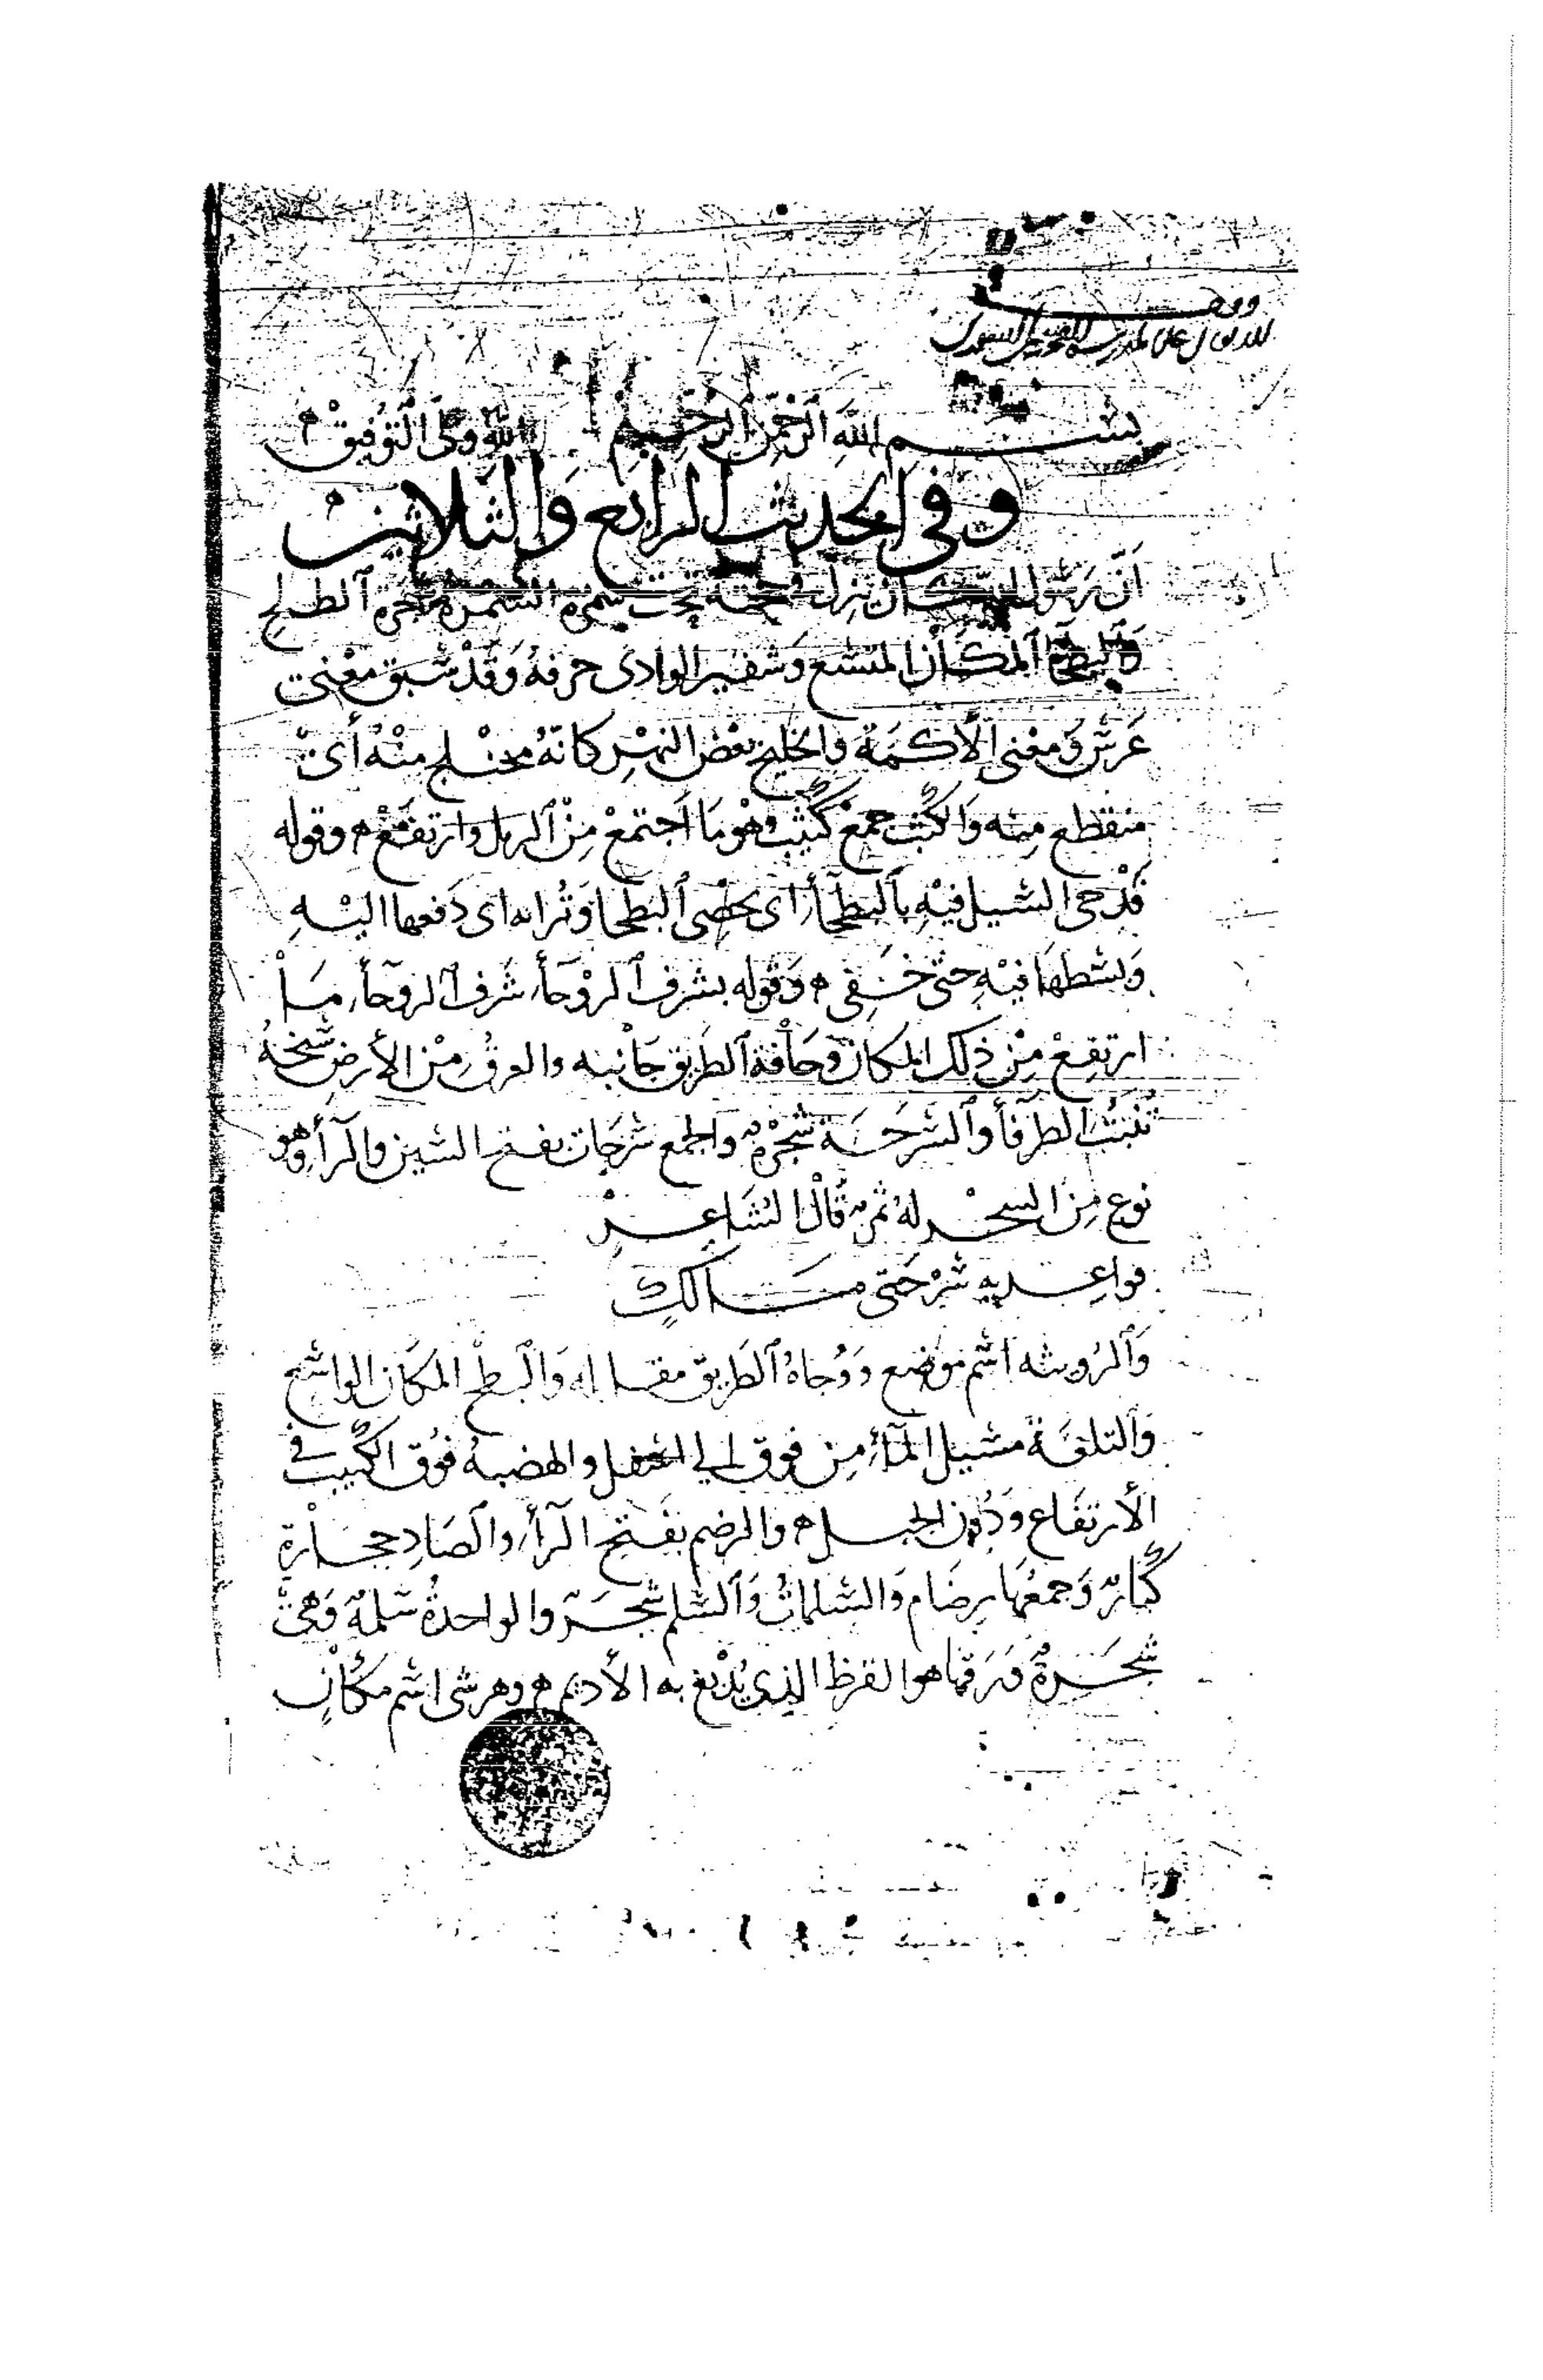 وقف
بسم الله الرحمن الرحيم الله ولي التوفيق
وفي الحديث الرابع والثلاثين
أَنّ رسول الله كان ينزل في حجته تحت سمرة السمرة شجرة الطلح
والبطحا المكان المتسع وشفير الوادى حرفه وَقَدْ سَبق معْنى
عَرّسَ وَمعْنى الأكَمَة والخليج بعْض النهْرِ كانهُ مختلج منْهُ أىْ
منقطع مِنه وَالكُثُب جمع كثِيْب وهْو مَا اَجتمعْ مِنْ الرمل وارتفَع ه وقوله
فَدْحى السيل فيْهِ بِالبطحَأ اى بحصَى البطحا وَتُرابه اى دَفعها اليْهِ
وَبسَطهَا فيْهِ حتى خَفى ه وَقوله بشرف الروْحَأ شَرف الروحَأ مَا
ارتفعْ مِنْ ذلك المكان وحَافة الطريق جَانبه والعرق مِنْ الأرض سَبخةُ
تنبتُ الطرفَأ والسَرحَة شجَرةٌ والجمع سَرحَات بفتح السين والرَأ وهو
نوع مِنَ الشجر لهُ ثمرٌ قَالَ الشَاعِرْ
فواعديهِ سَرْحَتى مَالكٍ
وَالرُويثه اسم موضع ووُجاهُ الطَريق مقابله وَالبطح المكَان الواسع
وَالتلعَة مَسيل المآءِ مِن فوق إلى اسفل والهضبهُ فوْق الكثيب في
الأرتفَاع وَدُون الجبل ه والرضم بفَتح الرَأ والضَادِ حجَارة
كبَارٌ وَجمعُهَا رِضَام وَالسَلمات وَالسَلم شجَر والواحدةُ سَلمةٌ وَهىْ
شجَرةٌ وَرَقها هو القرظ الذي يُدْبغ به الأديم ه وهرشى اسم مَكَانٍ